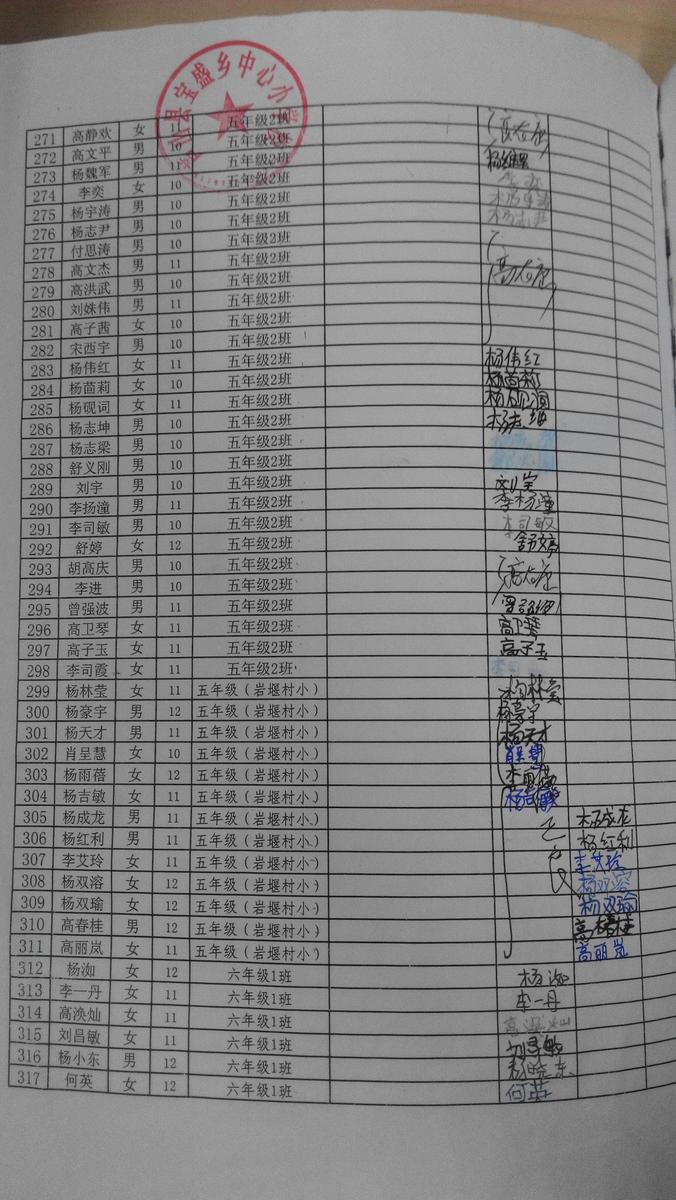 县宝盛乡中心小
271 高静欢 女 11 五年级2班
272 高文平 男 10 五年级2班
273 杨魏军 男 11 五年级2班
274 李奕 女 10 五年级2班
275 杨宇涛 男 10 五年级2班
276 杨志尹 男 10 五年级2班
277 付思涛 男 10 五年级2班
278 高文杰 男 11 五年级2班
279 高洪武 男 10 五年级2班
280 刘姝伟 男 11 五年级2班
281 高子茜 女 10 五年级2班
282 宋西宇 男 10 五年级2班
283 杨伟红 女 11 五年级2班 杨伟红
284 杨茴莉 女 10 五年级2班 杨茴莉
285 杨砚词 女 11 五年级2班 杨砚词
286 杨志坤 男 10 五年级2班 杨志坤
287 杨志梁 男 10 五年级2班
288 舒义刚 男 10 五年级2班
289 刘宇 男 10 五年级2班
290 李扬潼 男 11 五年级2班 李杨潼
291 李司敏 男 10 五年级2班 李司敏
292 舒婷 女 12 五年级2班 舒婷
293 胡高庆 男 10 五年级2班
294 李进 男 10 五年级2班
295 曾强波 男 11 五年级2班
296 高卫琴 女 11 五年级2班 高卫琴
297 高子玉 女 11 五年级2班 高子玉
298 李司霞 女 11 五年级2班
299 杨林莹 女 11 五年级（岩堰村小） 杨林莹
300 杨豪宇 男 12 五年级（岩堰村小） 杨豪宇
301 杨天才 男 11 五年级（岩堰村小） 杨天才
302 肖呈慧 女 10 五年级（岩堰村小） 肖呈慧
303 杨雨蓓 女 12 五年级（岩堰村小）
304 杨吉敏 女 11 五年级（岩堰村小） 杨吉敏
305 杨成龙 男 11 五年级（岩堰村小） 杨成龙
306 杨红利 男 11 五年级（岩堰村小） 杨红利
307 李艾玲 女 11 五年级（岩堰村小） 李艾玲
308 杨双溶 女 12 五年级（岩堰村小） 杨双溶
309 杨双瑜 女 12 五年级（岩堰村小） 杨双瑜
310 高春桂 男 12 五年级（岩堰村小）
311 高丽岚 女 11 五年级（岩堰村小） 高丽岚
312 杨洳 女 12 六年级1班 杨洳
313 李一丹 女 11 六年级1班 李一丹
314 高涣灿 女 11 六年级1班
315 刘昌敏 女 11 六年级1班 刘昌敏
316 杨小东 男 12 六年级1班
317 何英 女 12 六年级1班 何英